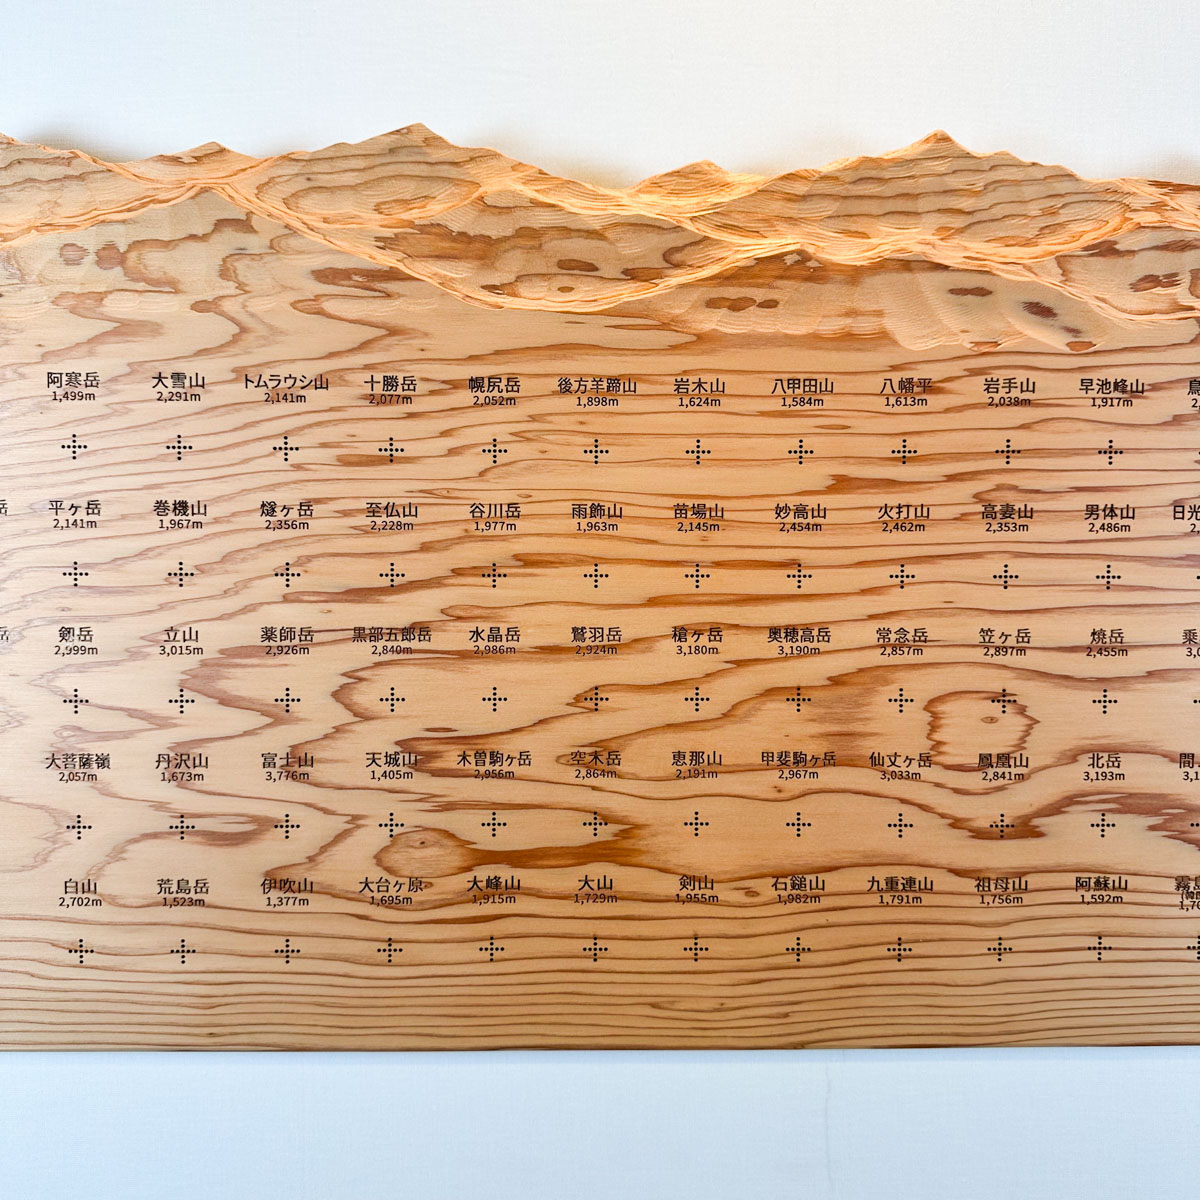 阿寒岳 大雪山 トムラウシ山 十勝岳 幌尻岳 後方羊蹄山 岩木山 八甲田山 八幡平 岩手山 早池峰山 鳥
1,499m 2,291m 2,141m 2,077m 2,052m 1,898m 1,624m 1,584m 1,613m 2,038m 1,917m 2,
岳 平ヶ岳 巻機山 燧ヶ岳 至仏山 谷川岳 雨飾山 苗場山 妙高山 火打山 高妻山 男体山 日光
2,141m 1,967m 2,356m 2,228m 1,977m 1,963m 2,145m 2,454m 2,462m 2,353m 2,486m 2,
岳 剱岳 立山 薬師岳 黒部五郎岳 水晶岳 鷲羽岳 槍ヶ岳 奥穂高岳 常念岳 笠ヶ岳 焼岳 乗
2,999m 3,015m 2,926m 2,840m 2,986m 2,924m 3,180m 3,190m 2,857m 2,897m 2,455m 3,0
大菩薩嶺 丹沢山 富士山 天城山 木曽駒ヶ岳 空木岳 恵那山 甲斐駒ヶ岳 仙丈ヶ岳 鳳凰山 北岳 間
2,057m 1,673m 3,776m 1,405m 2,956m 2,864m 2,191m 2,967m 3,033m 2,841m 3,193m 3,1
白山 荒島岳 伊吹山 大台ヶ原 大峰山 大山 剣山 石鎚山 九重連山 祖母山 阿蘇山 霧島
2,702m 1,523m 1,377m 1,695m 1,915m 1,729m 1,955m 1,982m 1,791m 1,756m 1,592m 1,70